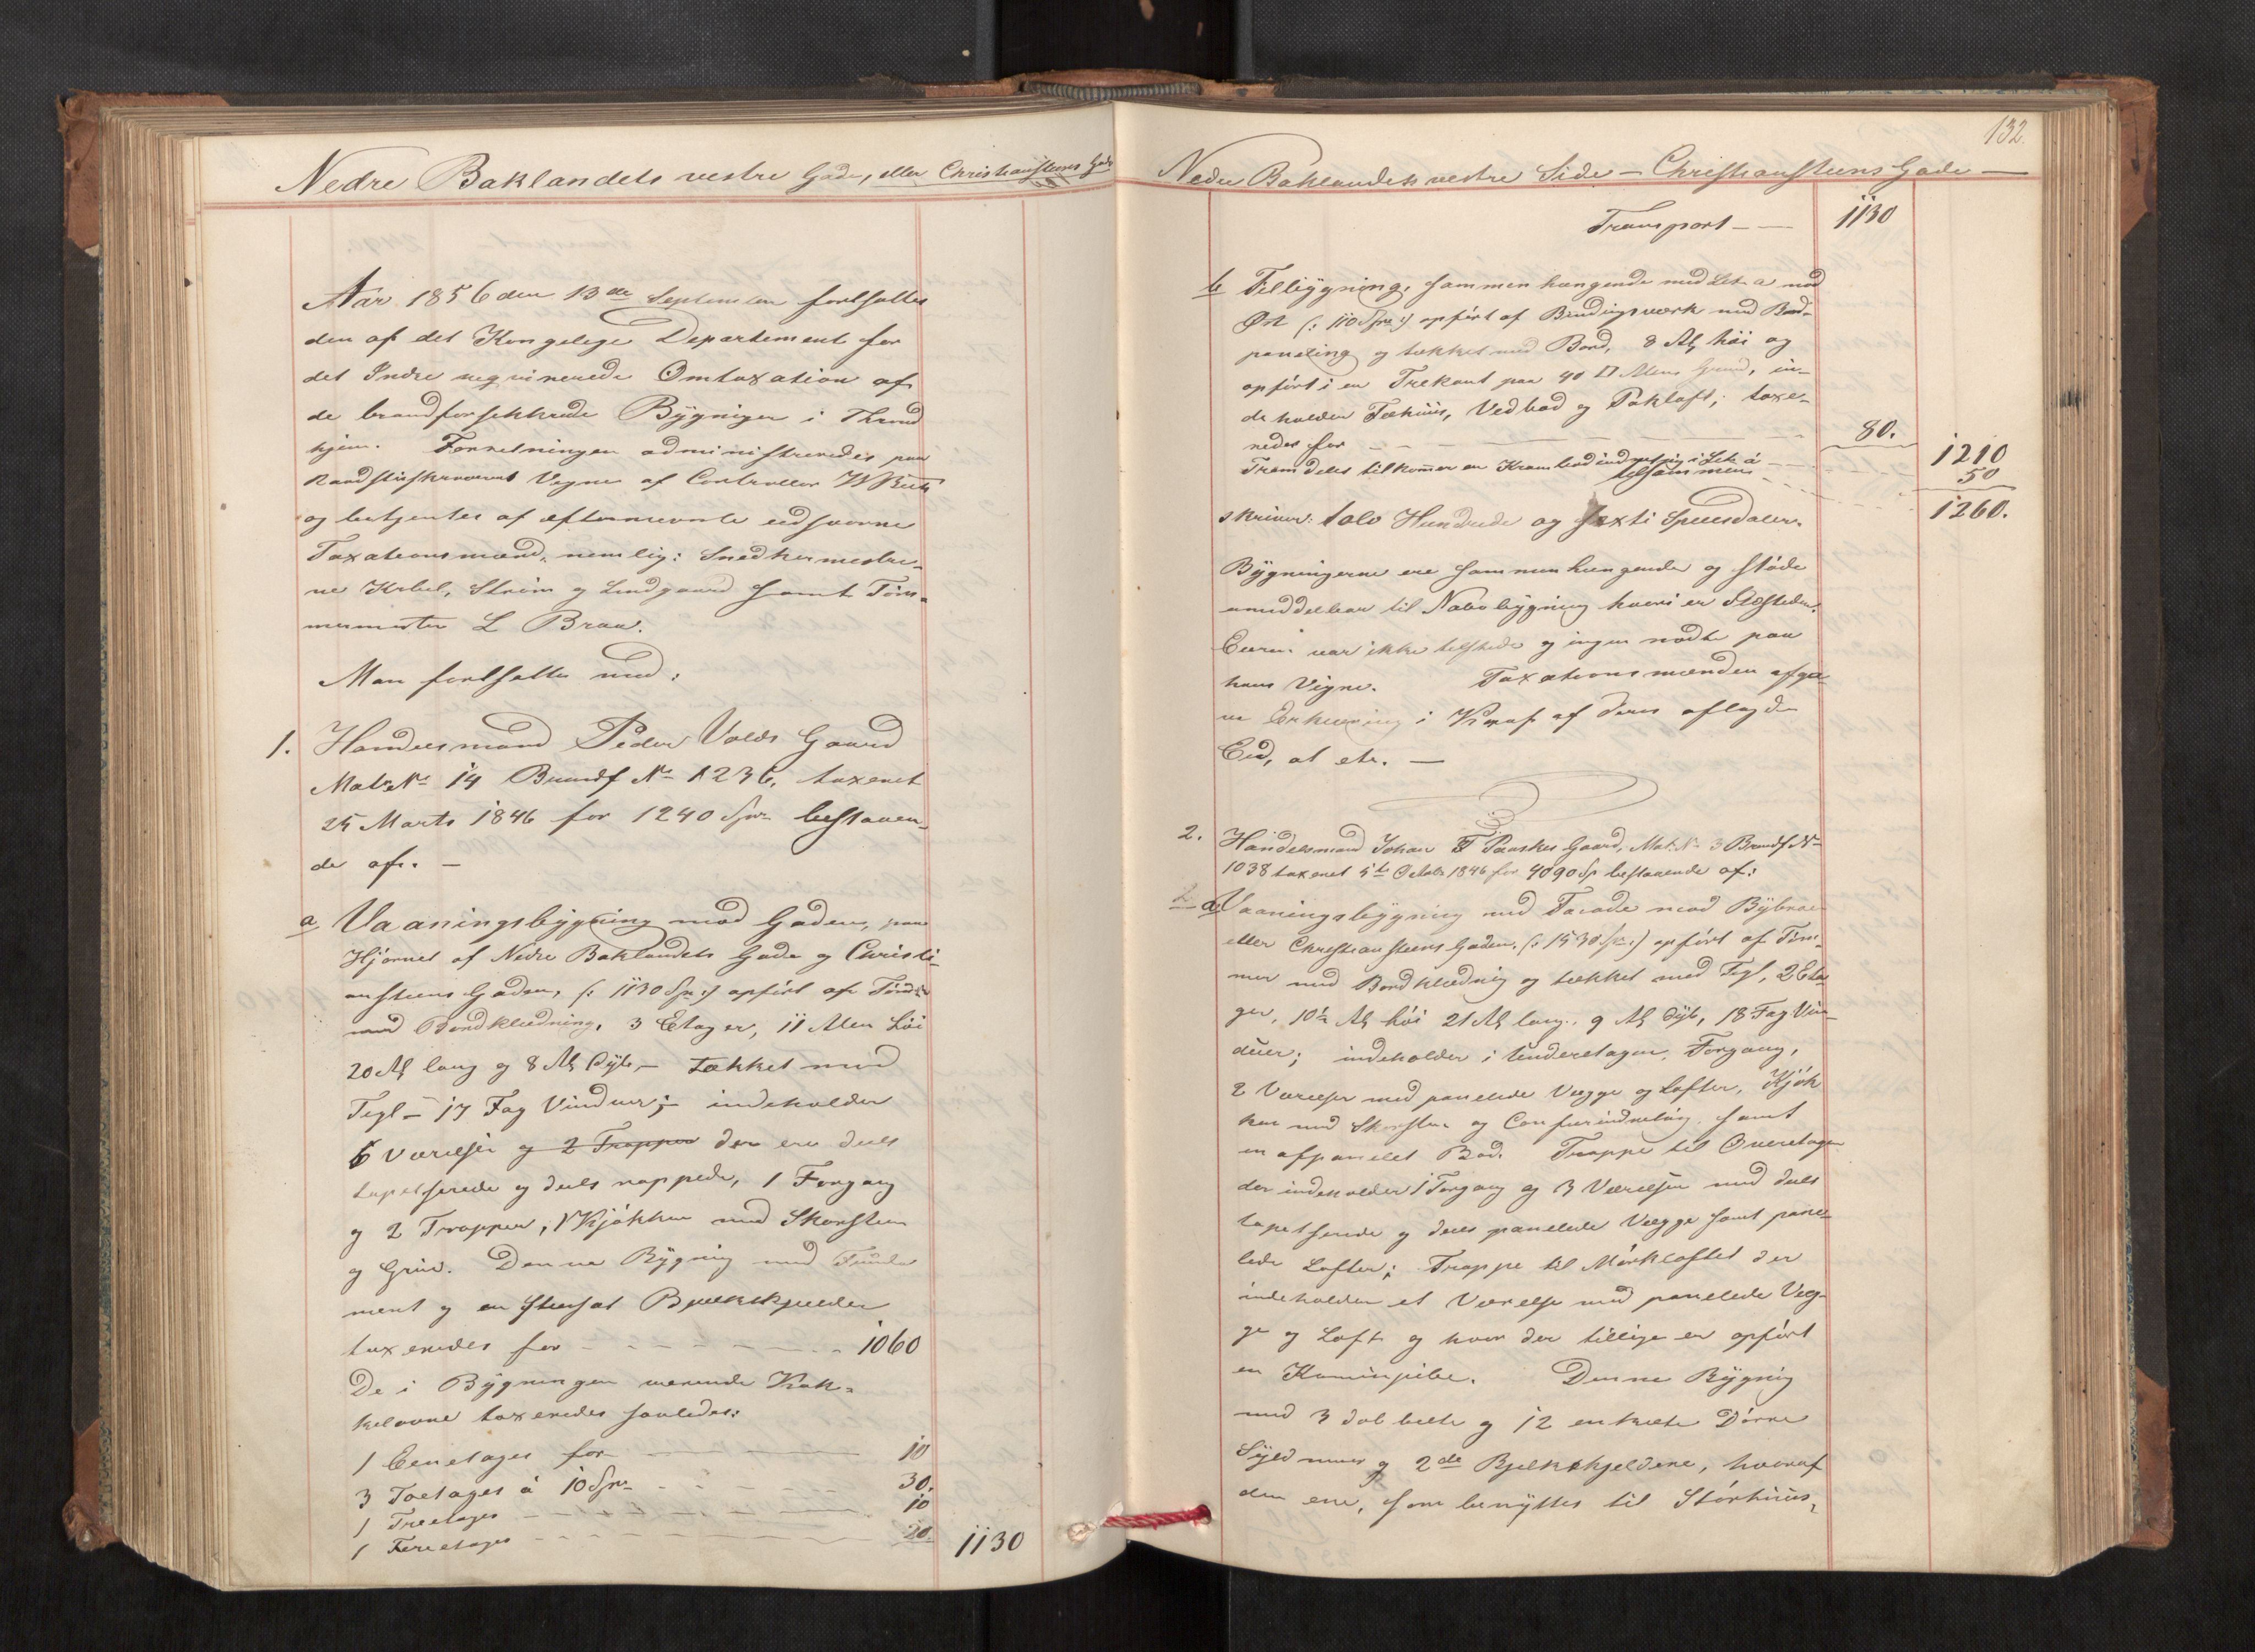 Nedre Baklandets vestre Gade, eller Christiansteens Gade
Aar 1856 den 13de September fortsattes
den af det Kongelige Departement for
det Indre reqvirerede Omtaxation af
de brandforsikkrede Bÿgninger i Thrond
hjem. Forretningen administreredes paa
Raadstuskriverens Vegne af Controllør
og betjentes af efternævnte eedsvorne
Taxationsmænd, nemlig: Snedkermestre-
ne Krbel, Strøm og Lindgaard samt Tøm-
mermester L Braa.
Man fortsatte med:
1. Handelsmand Peder Valds Gaard
Mat. No 14 Brandf No 1236, taxeret
25 Marts 1846 for 1240 Spr bestaaen-
de af: —
a Vaaningsbÿgning mod Gaden, paa
Hjørnet af Nedre Baklandets Gade og Christi-
ansteens Gaden, (: 1130 Spr :) opført af Tømmer
med Bordklædning, 3 Etager, 11 Alen høi
20 Al lang og 8 Al Dÿb, — tækket med
Tegl — 17 Fag Vinduer; — indeholder
6 Værelser og 2 Trapper der ere deels
tapetserede og deels rappede, 1 Forgang
og 2 Trapper, 1 Kjøkken med Skorsteen
og Grue. Denne Bÿgning med Funda
ment og en steensat Bjelkekjelder
taxeredes for — — — 1060
De i Bÿgningen værende Kak-
kelovne taxeredes saaledes:
1 Eenetages for — — 10
3 Toetages á 10 Spr — — 30.
1 Treetages — — 10
1 Fireetages — — 20. 1130
132.
Nedre Baklandets vestre Side — Christiansteens Gade —
Transport — — 1130
b Tilbÿgning, sammenhængende med Litr a mod
Øst (: 110 Spr :) opført af Bindingsværk med Bord-
paneling og tækket med Bord, 8 Al høi og
opført i en Trekant paa 40 □ Alens Grund, in-
deholder Fæhuus, Vedbod og Pakloft; taxe-
redes for — — — 80.
1210
Fremdeles tilkommer en Krambodindretning i Litr a — 50
tilsammen — 1260.
skriver: tolv Hundrede og sexti Speciesdaler.
Bÿgningerne ere sammenhængende og støde
umiddelbar til Nabobÿgning hvori er Ildsteder.
Eieren var ikke tilstede og ingen mødte paa
hans Vegne. Taxationsmændene afga-
ve Erklæring i Kraft af deres aflagde
Eed, at etc. —
2. Handelsmand Johan Paaskes Gaard, Mat: No 3 Brandf No
1038 taxeret 5te Octobr 1846 for 4090 Sp bestaaende af:
a Vaaningsbÿgning med Facade mod Bÿbroen
eller Christiansteens Gaden. (: 1530 Spr :) opført af Töm-
mer med Bordklædning og tækket med Tegl, 2 Eta-
ger, 10½ Al høi 21 Al lang, 9 Al Dÿb, 18 Fag Vin-
duer; indeholder i Underetagen, Forgang,
2 Værelser med panelede Vægge og Lofter, Kjøk
ken med Skorsteen og Comfurindretning, samt
en afpanelet Bod. Trappe til Overetagen
der indeholder 1 Forgang og 3 Værelser med deels
tapetserede og deels panelede Vægge samt pane-
lede Lofter; Trappe til Mørkloftet der
indeholder et Værelse med panelede Væg-
ge og Loft og hvor der tillige er opført
en Kaminpibe. Denne Bÿgning
med 3 dobbelte og 12 enkelte Dørre
Sÿldmuur og 2de Bjelkekjeldere, hvoraf
den ene, som benÿttes til Størhuus,